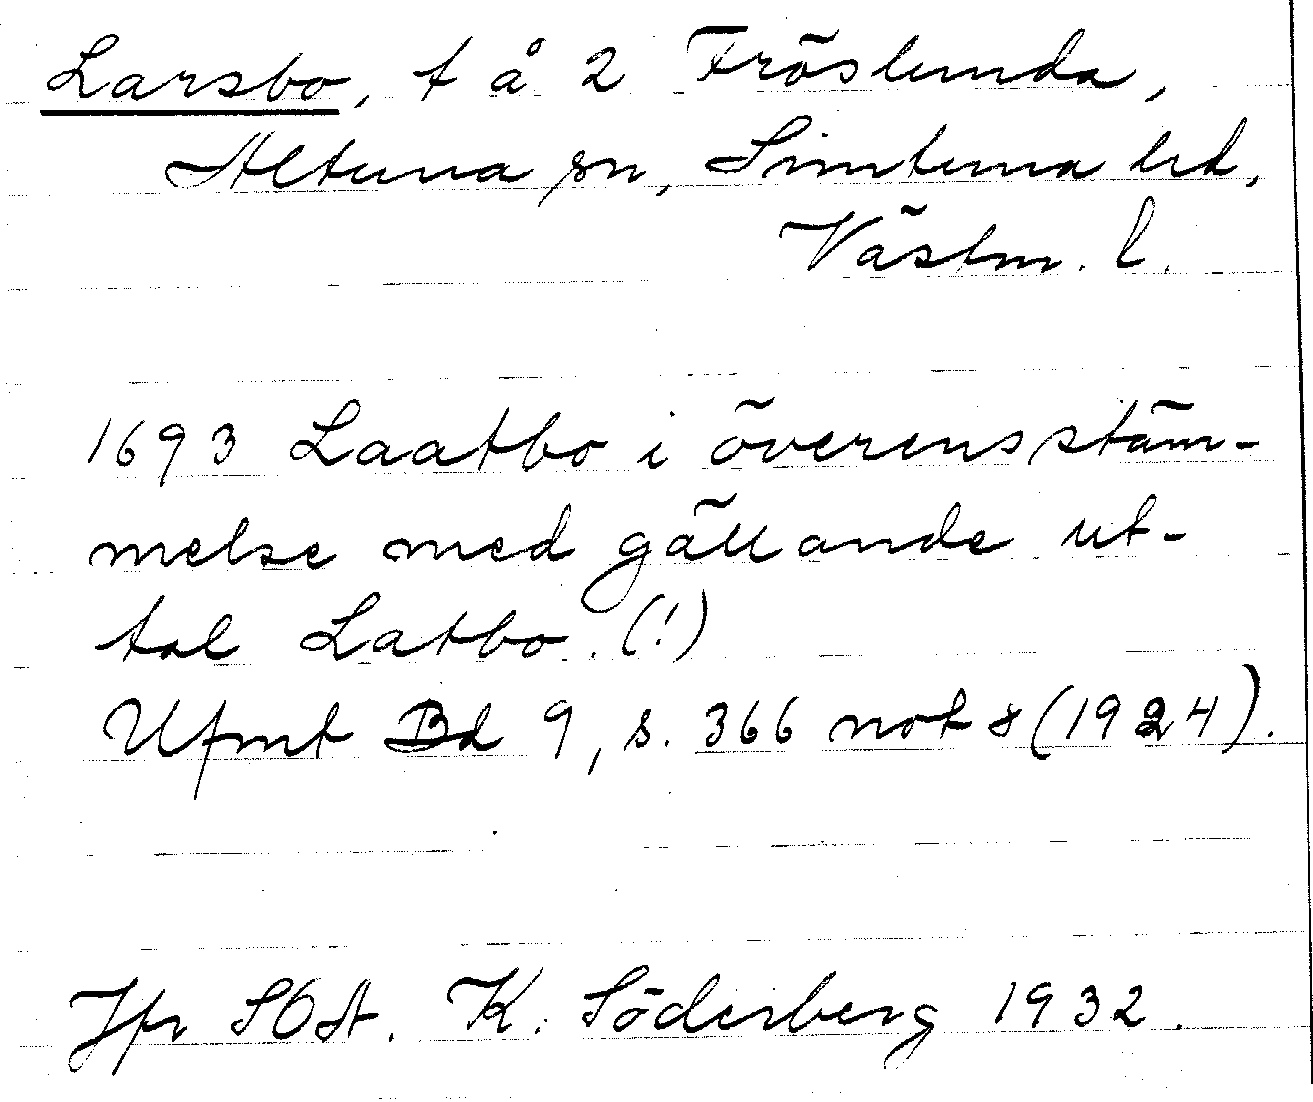 Larsbo, t å 2 Fröslunda,
Altuna sn, Simtuna hd,
Västm. l.
1693 Laatbo i överensstäm-
melse med gällande ut-
tal Latbo. (!)
Ufmt Bd 9, s. 366 not 8 (1924).
Jfr SOA. K. Söderberg 1932.